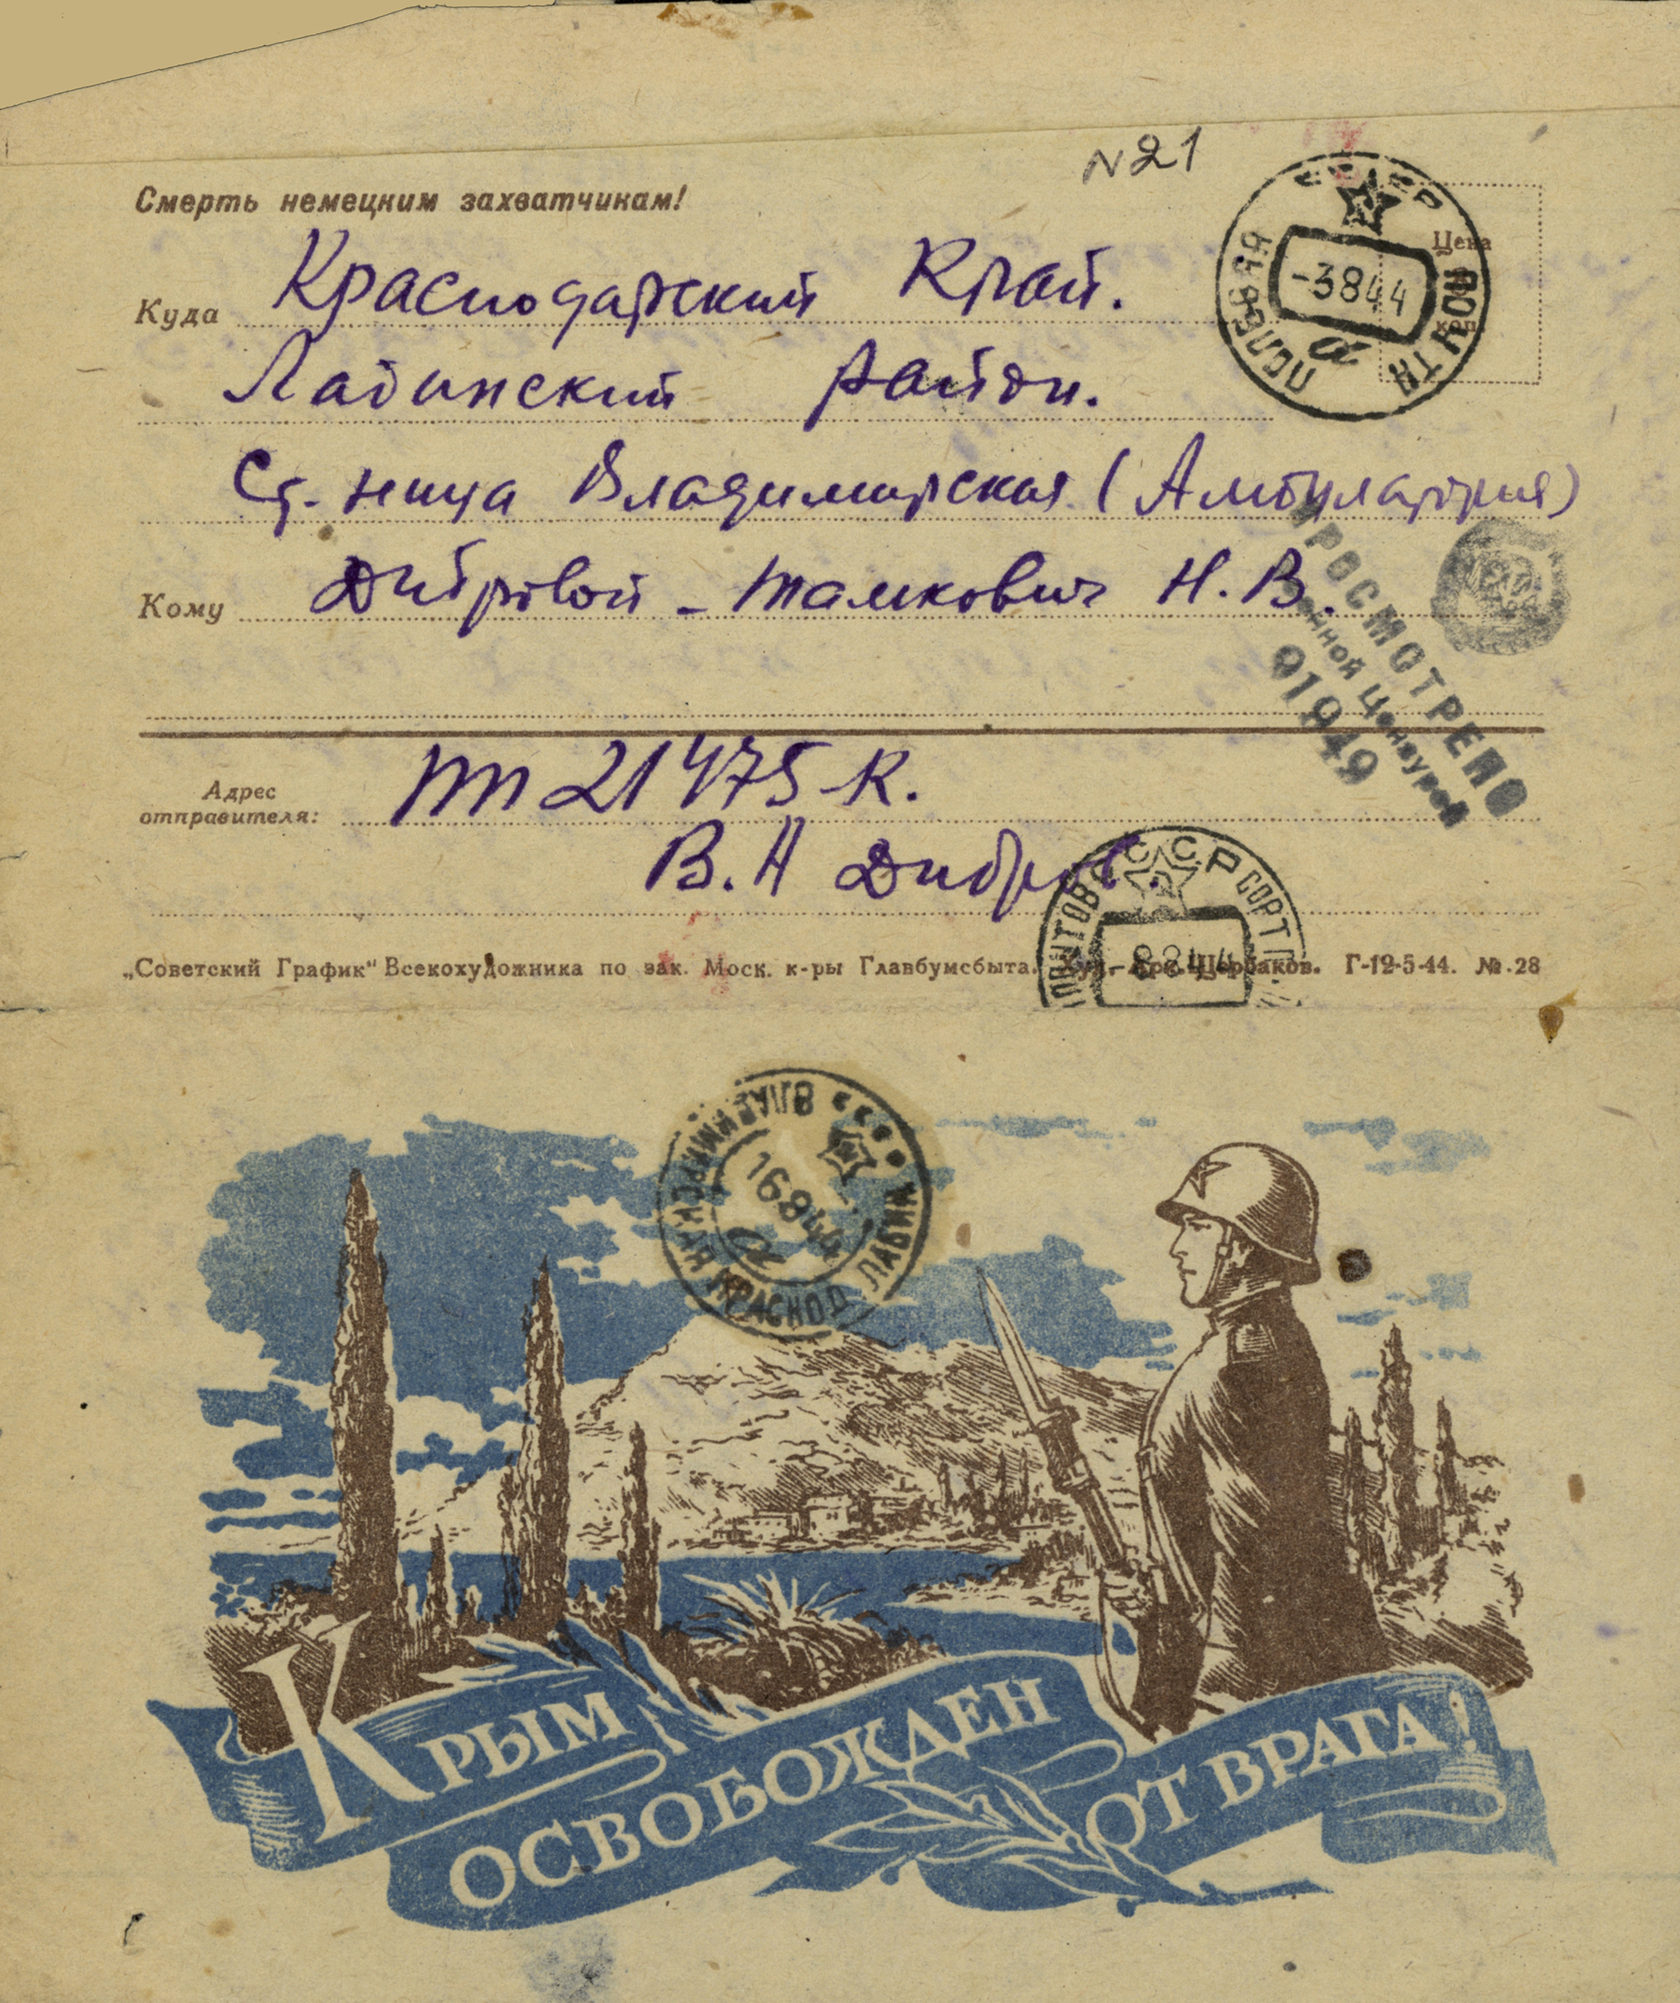 N 21
Смерть немецким захватчикам!
Куда Краснодарский Край.
Лабинский район.
Ст. ница Владимирская (Амбулатория)
Кому Дибровой - Тамкович Н. В.
Цена
коп.
СССР
ПОЛЕВАЯ ПОЧТА
-3 8 44
а
ПРОСМОТРЕНО
Военной Цензурой
01949
Адрес
отправителя:
пп 21475 К.
В. Н Дибров
СССР
8 8 44
„Советский График" Всекохудожника по зак. Моск. к-ры Главбумсбыта. Худ. Щербаков. Г-12-5-44. №.28
СССР
ВЛАДИМИРСКАЯ КРАСНОД ЛАБИН
16 8 44
а
КРЫМ
ОСВОБОЖДЕН
ОТ ВРАГА!